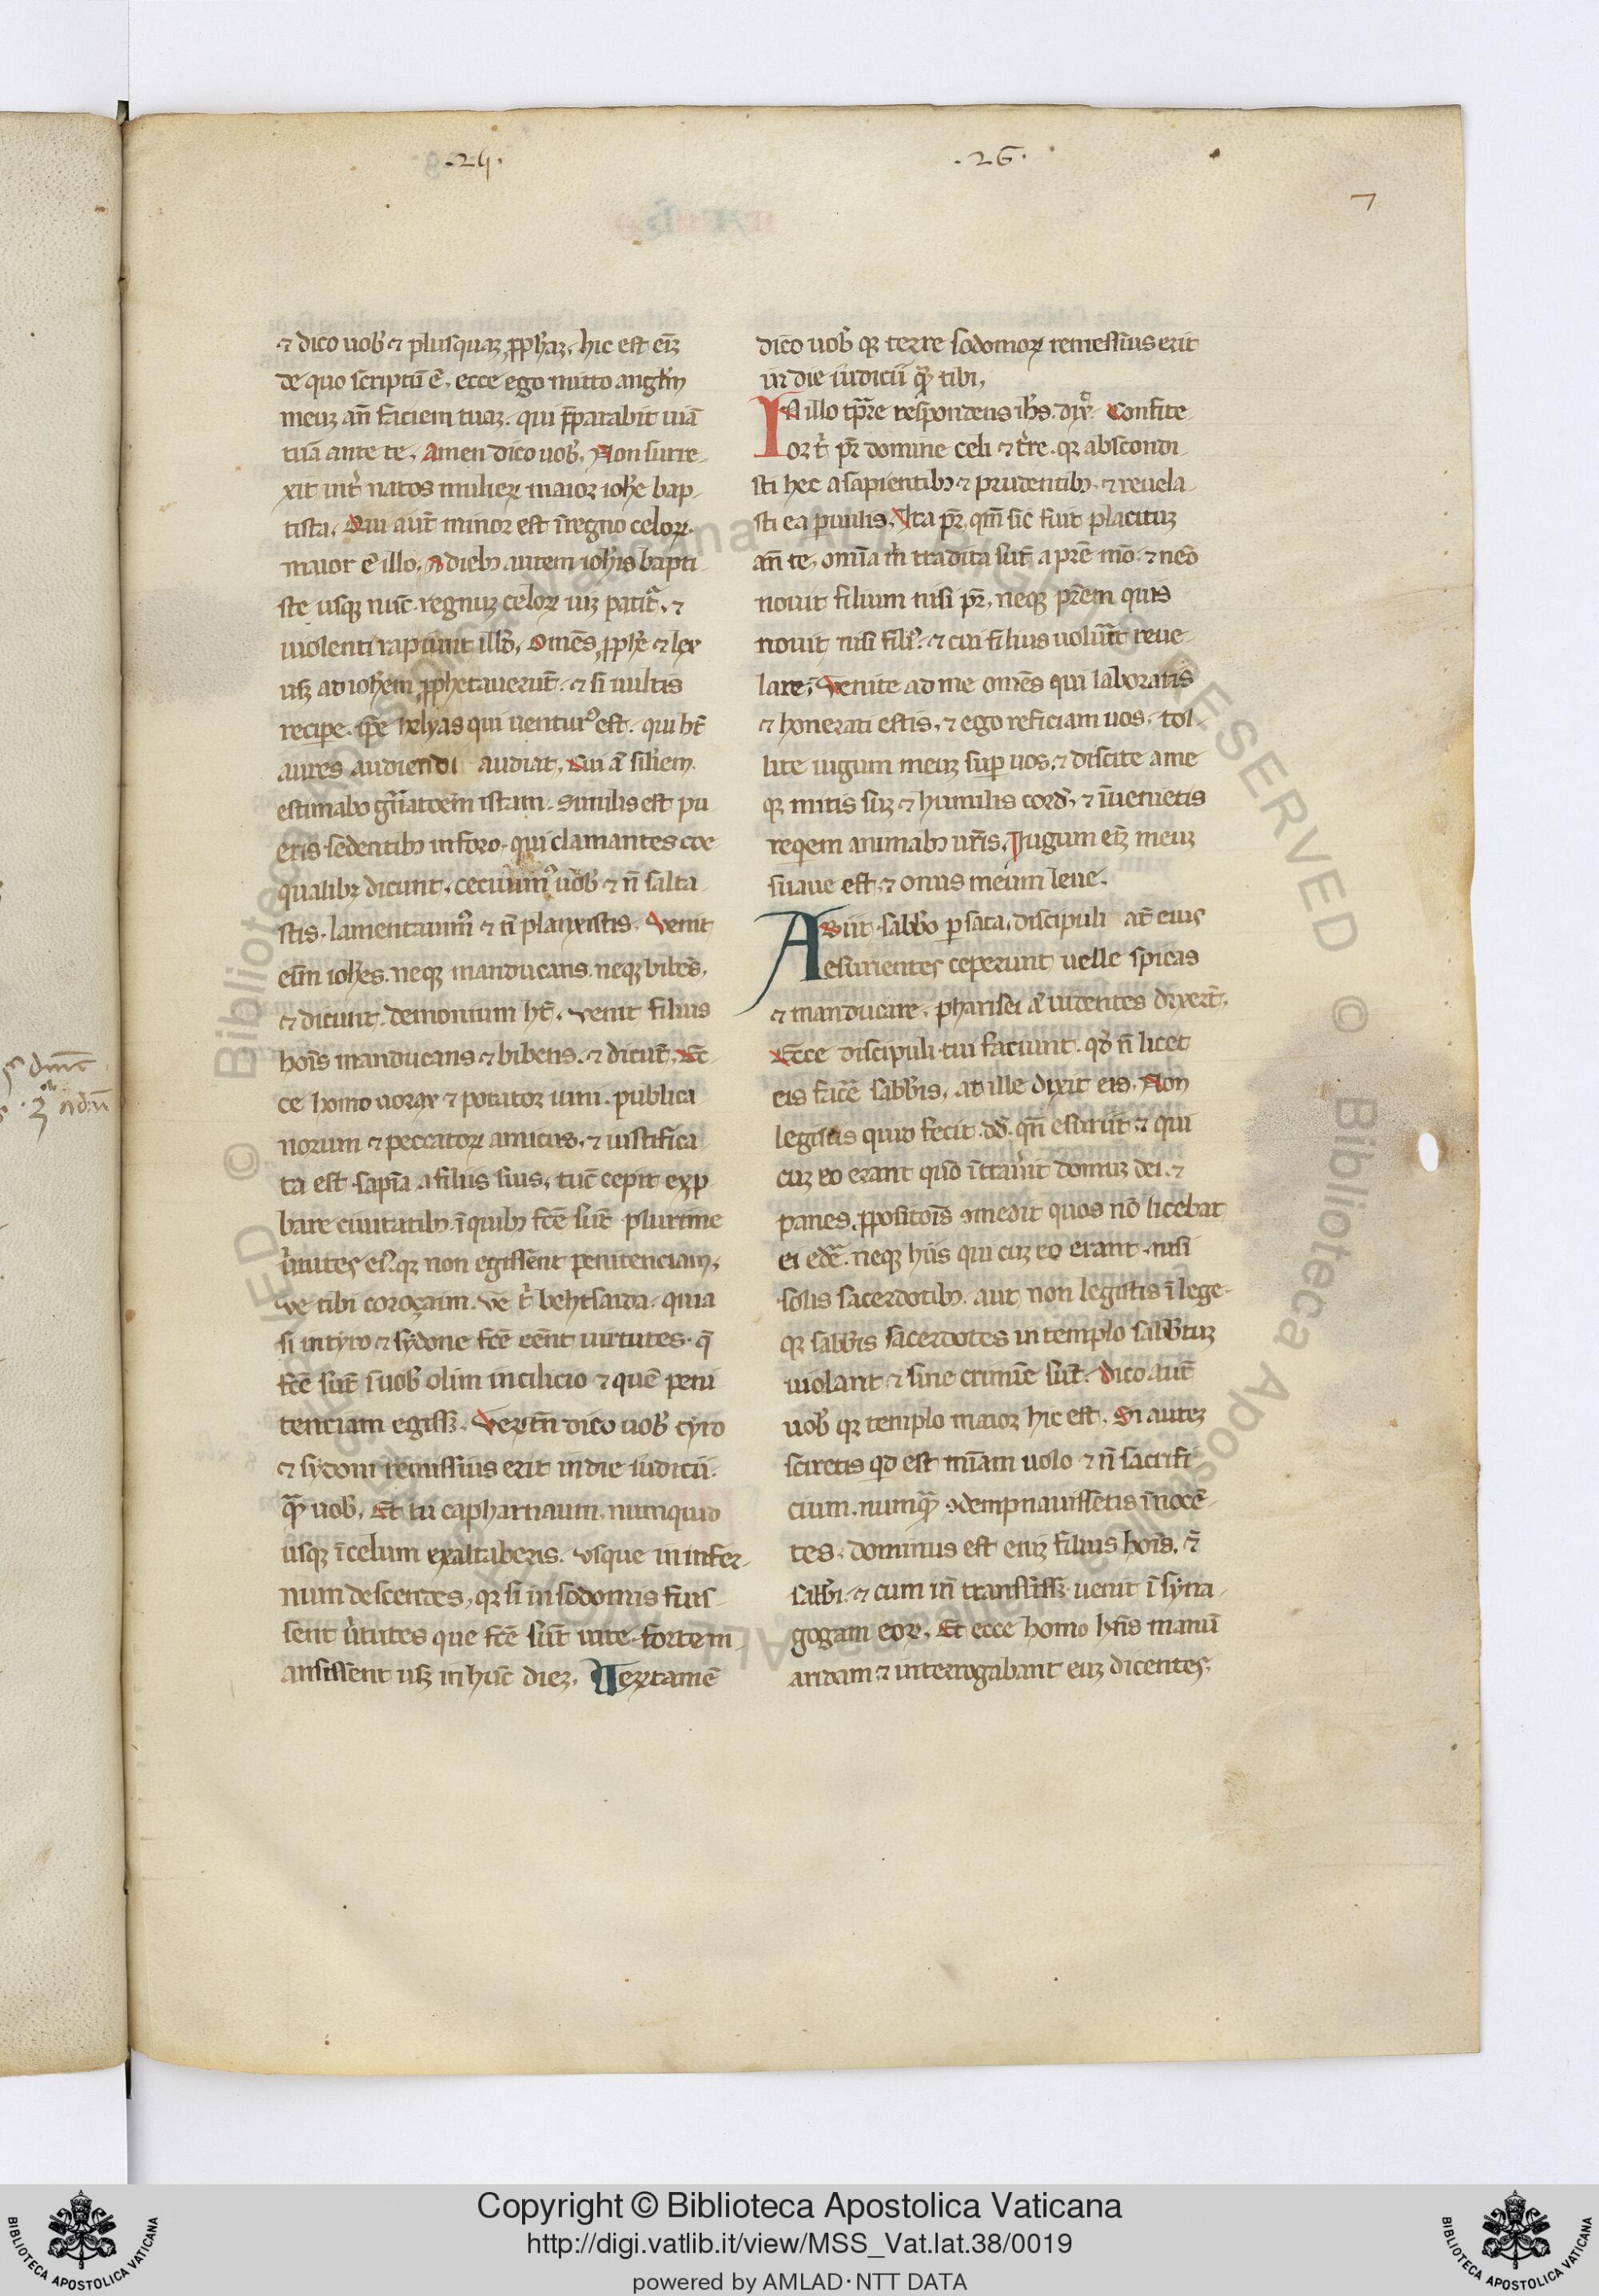 .24.
.26.
7
⁊ dico uob̾ ⁊ plusquaꝫ ꝓph̾aꝫ. hic est eīꝫ
de quo scriptū ē. ecce ego mitto angl̄m
meuꝫ an̄ faciem tuaꝫ. qui p̄parabit uiā
tuā ante te. Amen dico uob̾. Non surre
xit int̾ natos mulieꝝ maior ioh̄e bap
tista. Qui aut̄ minor est ī regno celoꝝ.
maior ē illo. A dieb᷒ autem ioh̄is bapti
ste usqꝫ nūc. regnuꝫ celoꝝ uiꝫ patit᷑. ⁊
uiolenti rapiunt ill̾d. Omēs ꝓph̄e ⁊ lex
usqꝫ ad ioh̄em ꝓphetauerūt. ⁊ si uultis
recipe. ip̄e helyas qui uentur᷒ est. qui ht̄
aures audiendi audiat. Cui ā sil̾em
estimabo gn̄ratoēm istam. Similis est pu
eris sedentib᷒ in foro. qui clamantes coe
qualibꝫ dicunt. cecinim᷒ uob̾ ⁊ n̄ salta
stis. lamentauim᷒ ⁊ n̄ planxistis. Venit
eīm ioh̄es. neqꝫ manducans. neqꝫ bibēs.
⁊ dicunt. demonium ht̄. venit filius
hoīs manducans ⁊ bibens. ⁊ dicūt. Ec
ce homo uorax ⁊ potator uini. publica
norum ⁊ peccatoꝝ amicus. ⁊ iustifica
ta est sapīa a filiis suis. tūc cepit exp
bare ciuitatib᷒. ī quib᷒ fcē sūt plurime
u̾tutes ei᷒. qꝫ non egissēnt penitenciam.
ve tibi coroçaim. ve t̾ behtsaida. quia
si in tyro ⁊ sydone fcē eēnt uirtutes. q̄
fcē sūt ī uob̾ olim in cilicio ⁊ quē peni
tenciam egissꝫ. Veꝝtn̄ dico uob̾ tyro
⁊ sydoni remissius erit in die iudicii.
qᷓ uob̾. Et tu capharnaum. numquid
usqꝫ ī celum exaltaberis. vsque in infer
num descendes. qꝫ si in sodomis fuis
sent u̾tutes que fcē sūt in te. forte m
ansissēnt usqꝫ in hūc dieꝫ. Veꝝtamē
dico uob̾ qꝫ terre sodomoꝝ remessius erit
in die iudicii qᷓ tibi.
IN illo tp̄re respondens ih̄s. dix̾. Confite
or t̾ pr̄ domine celi ⁊ t̾re. qꝫ abscondi
sti hec a sapientib᷒ ⁊ prudentib᷒. ⁊ reuela
sti ea paruulis. Ita pr̄. qm̄ sic fuit placituꝫ
an̄ te. omīa m̄ tradita sūt a pr̄e mō. ⁊ neō
nouit filium nisi pr̄. neqꝫ pr̄em quis
nouit nisi fili᷒. ⁊ cui filius uolu̾it reue
lare. Venite ad me omēs qui laboratis
⁊ honerati estis. ⁊ ego reficiam uos. tol
lite iugum meuꝫ sup̄ uos. ⁊ discite a me
qꝫ mitis suꝫ ⁊ humilis cord̾. ⁊ īuenietis
reqem animab᷒ ur̄is. Iugum eīꝫ meuꝫ
suaue est. ⁊ onus meum leue.
ABiit sabb̾o p sata. discipuli at̄ eius
esurientes ceperunt uelle spicas
⁊ manducare. pharisei ā uidentes dixert̄.
Ecce discipuli tui faciunt. qd̾ n̄ licet
eis facē sabb̾is. at ille dixit eis. Non
legistis quid fecit dd̄. qn̄ esuriit. ⁊ qui
cuꝫ eo erant quō īt̾uit domuꝫ dei. ⁊
panes ꝓpositōis ꝯmedit quos nō licebat
ei edē. neqꝫ hiis qui cuꝫ eo erant. nisi
solis sacerdotib᷒. aut non legistis ī lege
qꝫ sabb̾is sacerdotes in templo sabb̾tuꝫ
uiolant ⁊ sine crimīe sūt. Dico aut̄
uob̾ qꝫ templo maior hic est. Si auteꝫ
sciretis qd est mīam uolo ⁊ n̄ sacrifi
cium. numqᷓ ꝯdempnauissetis īnocē
tes. dominus est eniꝫ filius hoīs. ⁊̄
sabb̾i. ⁊ cum in̄ transissꝫ. uenit ī syna
gogam eoꝝ. Et ecce homo hn̄s manū
aridam ⁊ interrogabant euꝫ dicentes.
Copyright © Biblioteca Apostolica Vaticana
http://digi.vatlib.it/view/MSS_Vat.lat.38/0019
powered by AMLAD·NTT DATA
BIBLIOTECA APOSTOLICA VATICANA
BIBLIOTECA APOSTOLICA VATICANA